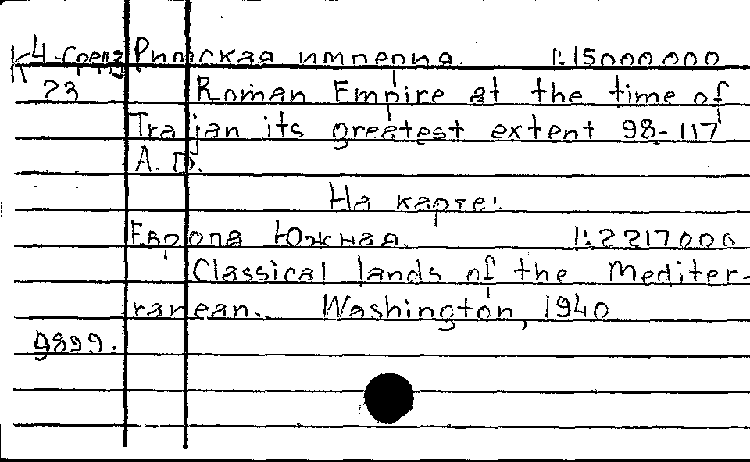 К 4-Средз Римская империя 1:15000000
23 Roman Empire at the time of
Trajan its greatest extent 98-117
A. D.
На карте:
Европа Южная. 1:2217000
Classical lands of the Mediter-
ranean. Washington, 1940
9899.